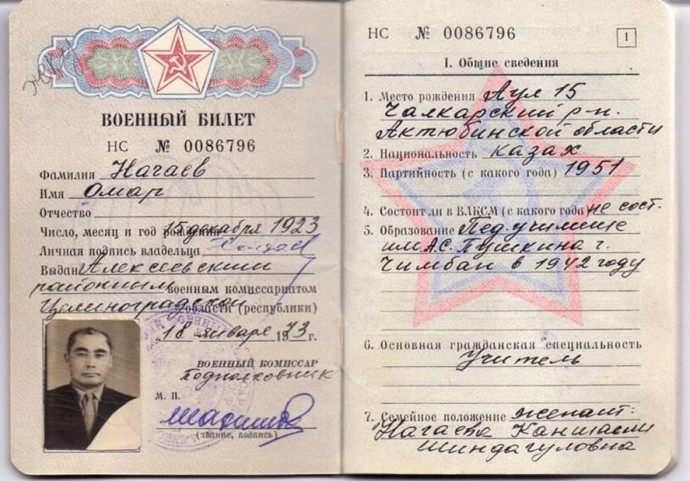 ВОЕННЫЙ БИЛЕТ
НС № 0086796
Фамилия Нагаев
Имя Омар
Отчество
Число, месяц и год рождения 15 декабря 1923
Личная подпись владельца
Выдан Алексеевским
районным военным комиссариатом
Целиноградской области (республики)
„18 января 1973 г.
ВОЕННЫЙ КОМИССАР
Подполковник
М. П.
(звание, подпись)
НС № 0086796
1
I. Общие сведения
1. Место рождения Аул 15
Чалкарский р-н.
Актюбинской области
2. Национальность казах
3. Партийность (с какого года) 1951
4. Состоит ли в ВЛКСМ (с какого года) не сост.
5. Образование Пед.училище
им. А.С. Пушкина г.
Чимбай в 1942 году
6. Основная гражданская специальность
Учитель
7. Семейное положение женат:
Нагаева
Шиндагуловна